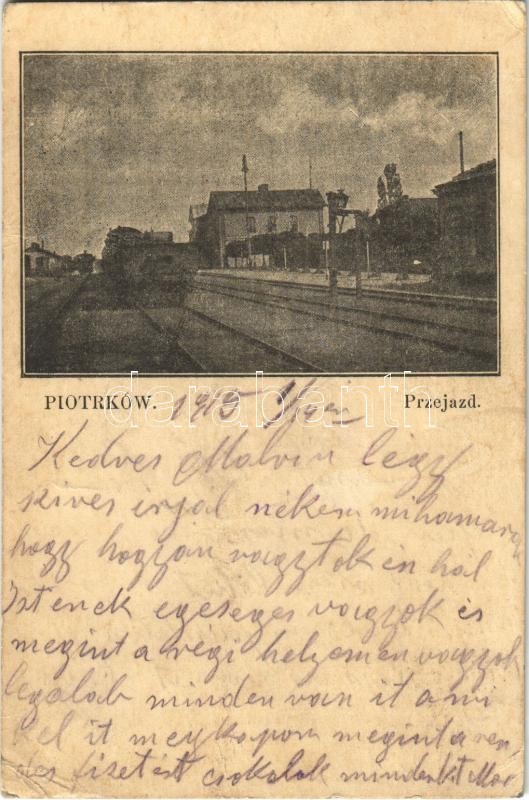 PIOTRKÓW. 1915 Przejazd.
darabanth
Kedves Malvin légy
szives irjál nékem mihamara
hogy hogyan vagytok én hál
Istenek egeseges vagyok és
megint a régi helyemen vagyok
legaláb minden van it a mi
kel it megkapom megint a ren
des fizetést csokolok mindenkit